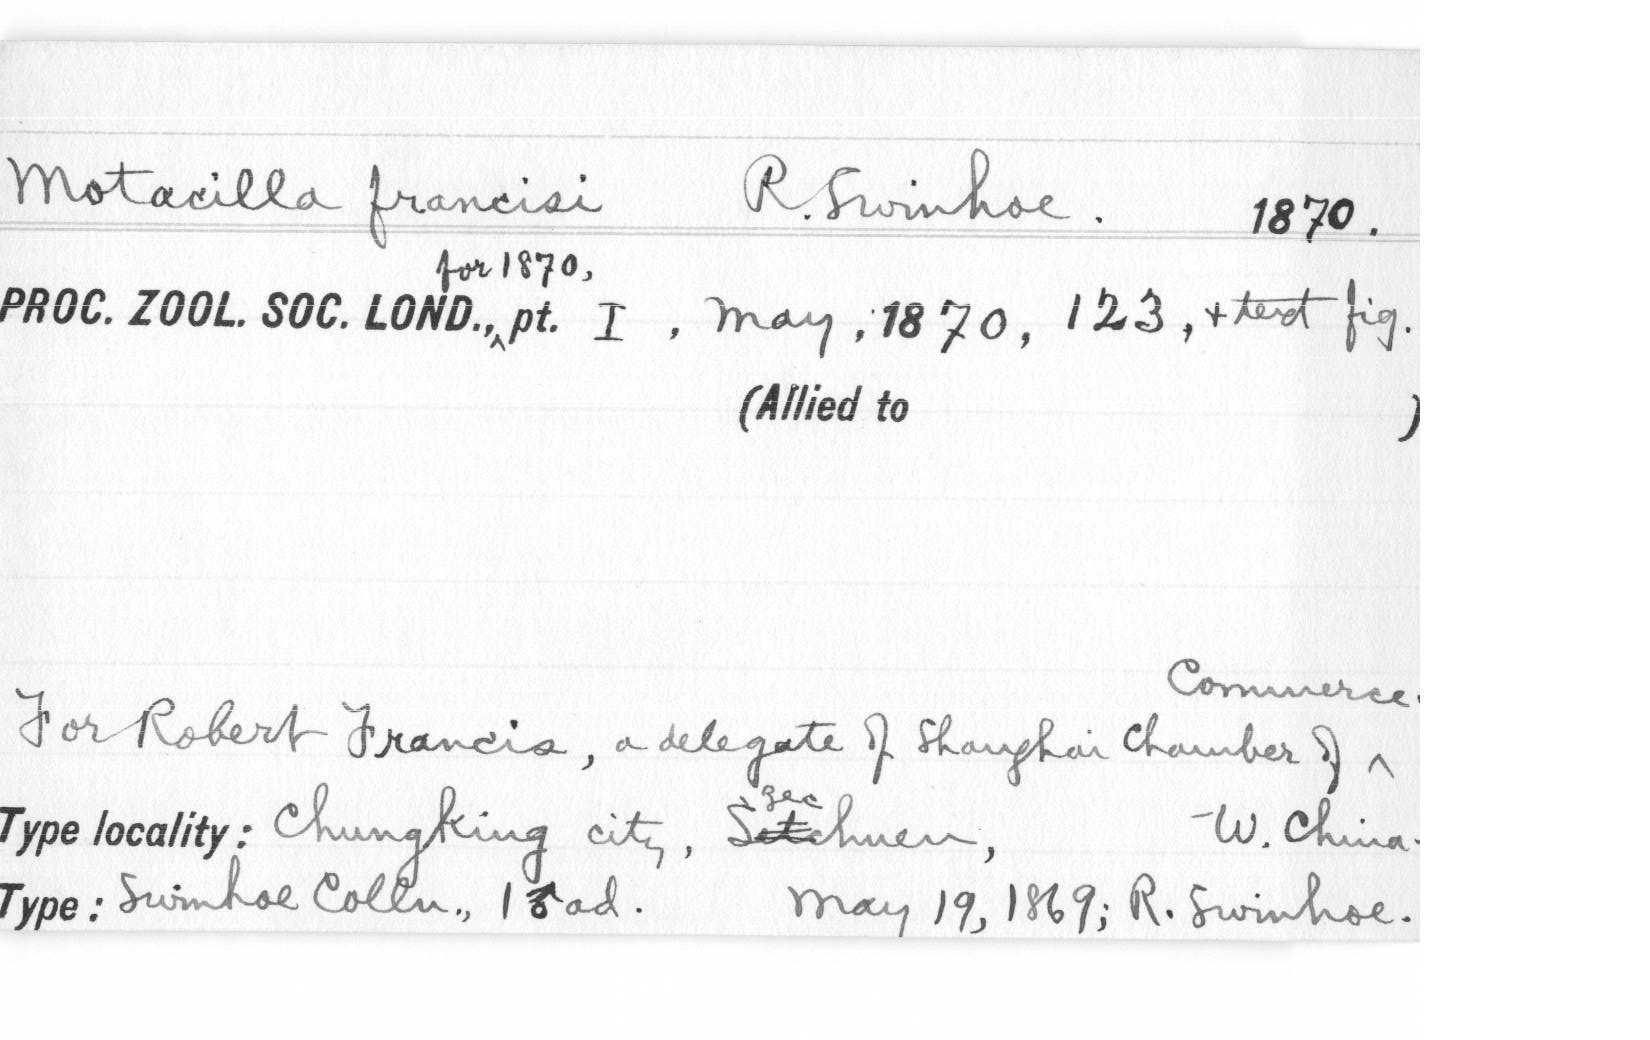 Motacilla francisi R. Swinhoe. 1870.
PROC. ZOOL. SOC. LOND., for 1870, pt. I, May, 1870, 123, + text fig.
(Allied to )
For Robert Francis, a delegate of Shanghai Chamber of Commerce.
Type locality: Chungking city, Szechuen, W. China.
Type: Swinhoe Colln., 1 ♂ ad. May 19, 1869; R. Swinhoe.